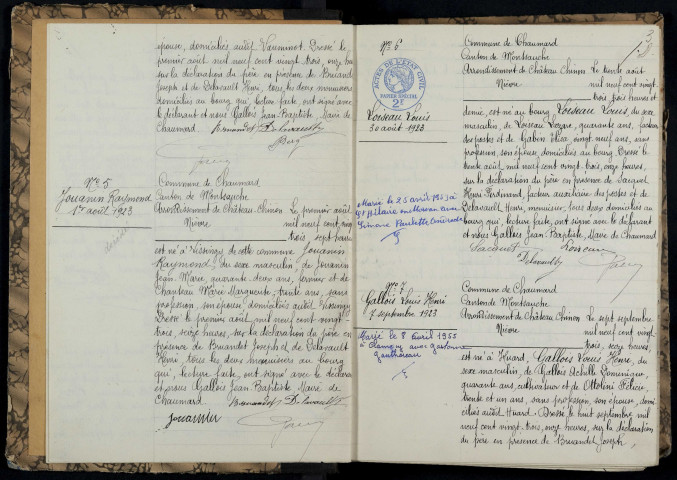 épouse, domiciliés audit Vauminot. Dressé le
premier août mil neuf cent vingt trois, onze heures
sur la déclaration du père en présence de Bruandet
Joseph et de Delavault Henri, tous les deux menuisiers
domiciliés au bourg qui, lecture faite, ont signé avec le
déclarant et nous Gallois Jean-Baptiste, Maire de
Chaumard. Bruandet Delavault
N° 5
Jouanin Raymond
1er août 1923
Commune de Chaumard
Canton de Montsauche
Arrondissement de Château Chinon
Nièvre
Le premier août
mil neuf cent vingt
trois, sept heures
est né à Vissingy de cette commune Jouanin
Raymond, du sexe masculin, de Jouanin
Jean Marie, quarante deux ans, fermier et de
Chanteau Marie Marguerite, trente ans, sans
profession, son épouse, domiciliés audit Vissingy
Dressé le premier août mil neuf cent vingt
trois, seize heures, sur la déclaration du père en
présence de Bruandet Joseph et de Delavault
Henri, tous les deux menuisiers au bourg
qui, lecture faite, ont signé avec le déclarant
et nous Gallois Jean Baptiste Maire de
Chaumard Bruandet Delavault
Jouannin
3
N° 6
ACTES DE L'ETAT CIVIL
PAPIER SPECIAL
2F
Loiseau Louis
30 août 1923
Marié le 25 avril
St Hilaire en Morvan avec
Simone Paulette
Commune de Chaumard
Canton de Montsauche
Arrondissement de Château Chinon
Nièvre
Le trente août
mil neuf cent vingt
trois, trois heures et
demie, est né au bourg Loiseau Louis, du sexe
masculin, de Loiseau Lazare, quarante ans, facteur
des postes et de Gabin Eliza vingt neuf ans, sans
profession, son épouse, domiciliés au bourg Dressé le
trente août mil neuf cent vingt trois, onze heures,
sur la déclaration du père en présence de Jacquot
Henri Ferdinand, facteur auxiliaire des postes et de
Delavault Henri, menuisier, tous deux domiciliés au
bourg qui, lecture faite, ont signé avec le déclarant
et nous Gallois Jean Baptiste, Maire de Chaumard
Jacquot Loiseau
Delavault
N° 7
Gallois Louis Henri
7 septembre 1923
Marié le 8 avril 1955
à Clamecy avec
Gauthereau
Commune de Chaumard
Canton de Montsauche
Arrondissement de Château Chinon
Nièvre
Le sept septembre
mil neuf cent vingt-
trois, seize heures,
est né à Huard, Gallois Louis Henri, du
sexe masculin, de Gallois Achille Dominique,
quarante ans, cultivateur et de Ottolini Félicie,
trente et un ans, sans profession, son épouse, domi-
ciliés audit Huard. Dressé le huit septembre mil
neuf cent vingt-trois, onze heures, sur la déclaration
du père en présence de Bruandet Joseph,